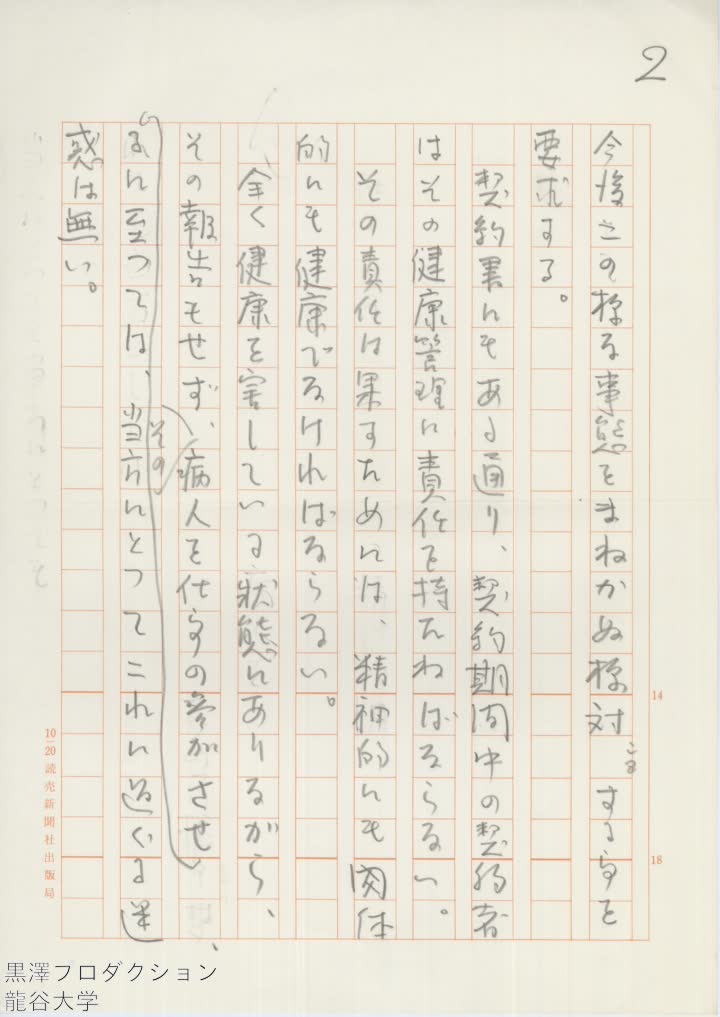 2
今後この様な事態をまねかぬ様対する事を
要求する。
契約書にもある通り、契約期間中の契約者
はその健康管理に責任を持たねばならない。
その責任は果すためには、精神的にも肉体
的にも健康でなければならない。
全く健康を害している状態にありながら、
その報告もせず、病人を仕事の参加させ、
その
るに至つては、当方にとつてこれに過ぐる迷
惑は無い。
14
18
10-20 読売新聞社出版局
黒澤プロダクション
龍谷大学